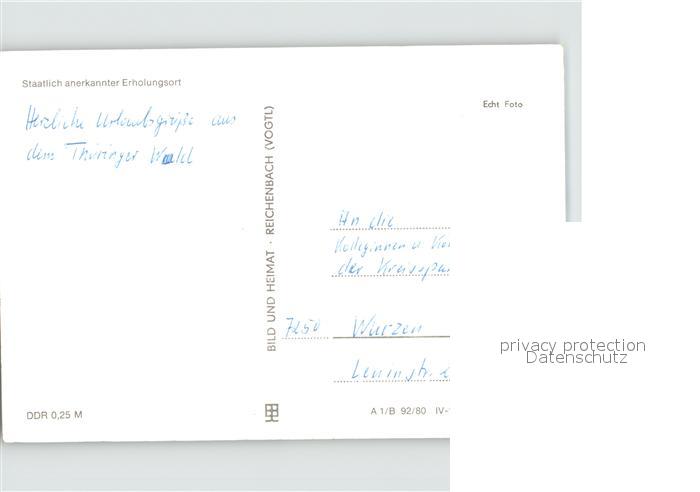 Staatlich anerkannter Erholungsort
Herzliche Urlaubsgrüße aus
dem Thüringer Wald
BILD UND HEIMAT · REICHENBACH (VOGTL)
Echt Foto
An die
Kolleginnen u.
der
7250 Wurzen
Leninstr.
DDR 0,25 M
A 1/B 92/80 IV-
privacy protection
Datenschutz